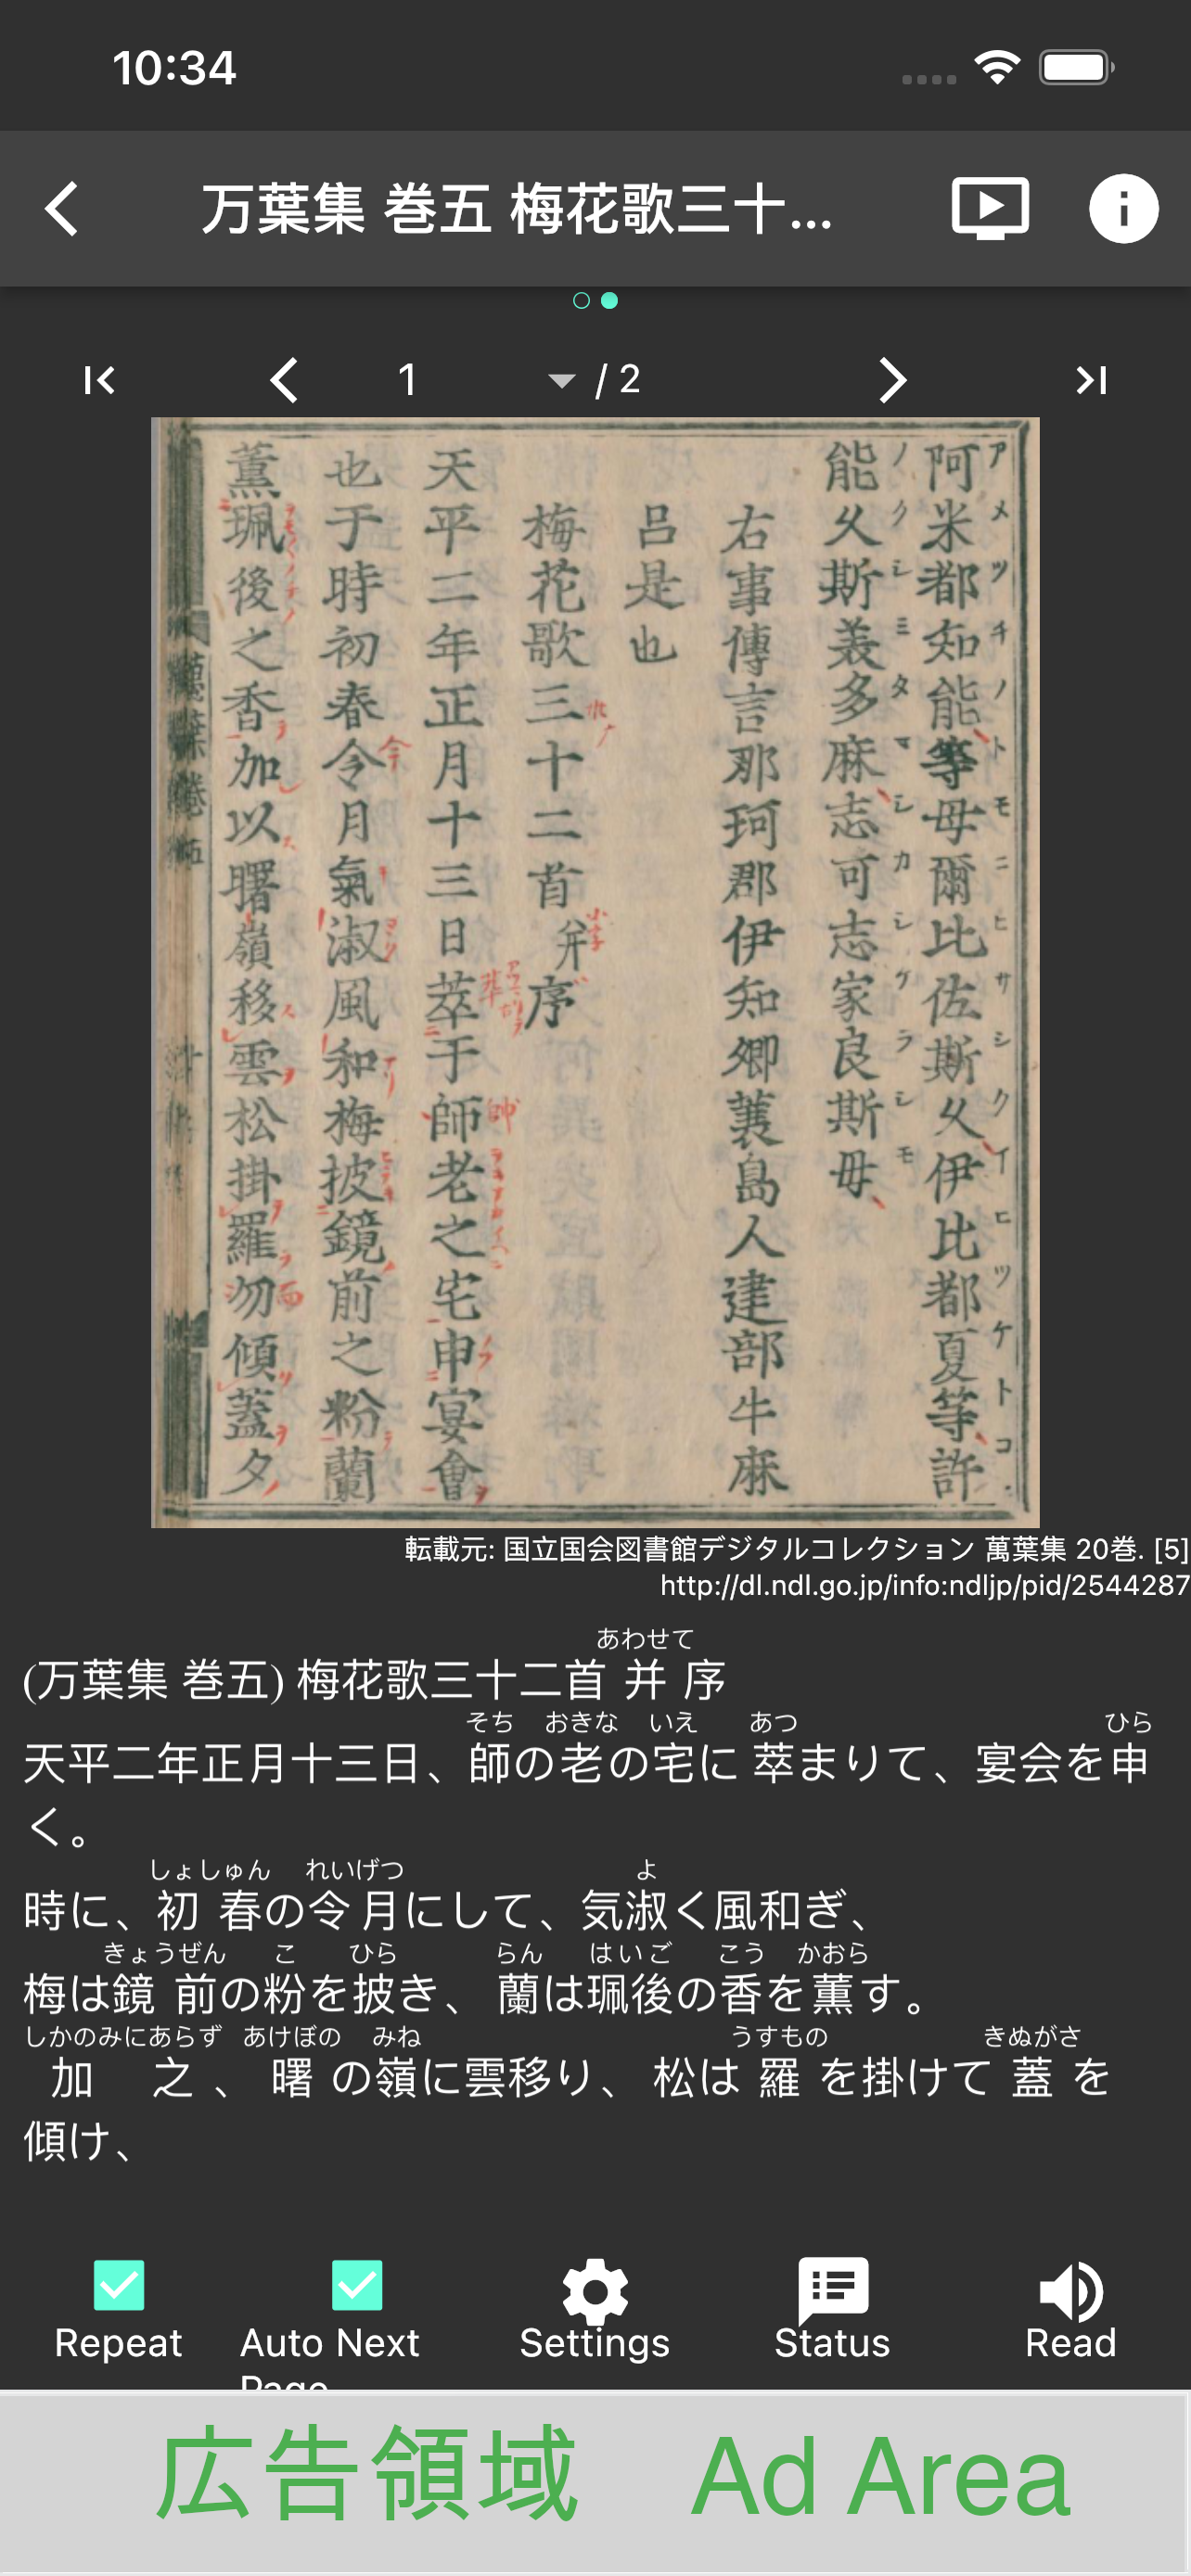 10:34
万葉集 巻五 梅花歌三十...
1 / 2
阿米都知能等母爾比佐斯久伊比都夏等許
アメツチノトモニヒサシクイヒツケトコ
能久斯義多麻志可志家良斯母
ノクシミタマシカシケラシモ
右事傳言那珂郡伊知郷蓑島人建部牛麻
呂是也
梅花歌三十二首并序
天平二年正月十三日萃于師老之宅申宴會
也于時初春令月氣淑風和梅披鏡前之粉蘭
薫珮後之香加以曙嶺移雲松掛羅勿傾蓋夕
転載元: 国立国会図書館デジタルコレクション 萬葉集 20巻. [5]
http://dl.ndl.go.jp/info:ndljp/pid/2544287
あわせて
(万葉集 巻五) 梅花歌三十二首 并 序
そち おきな いえ あつ ひら
天平二年正月十三日、師の老の宅に 萃まりて、宴会を申
く。
しょしゅん れいげつ よ
時に、初 春の令月にして、気淑く風和ぎ、
きょうぜん こ ひら らん はいご こう かおら
梅は鏡 前の粉を披き、 蘭は珮後の香を薫す。
しかのみにあらず あけぼの みね うすもの きぬがさ
加 之 、 曙 の嶺に雲移り、 松は 羅 を掛けて 蓋 を
傾け、
Repeat Auto Next Page Settings Status Read
広告領域 Ad Area